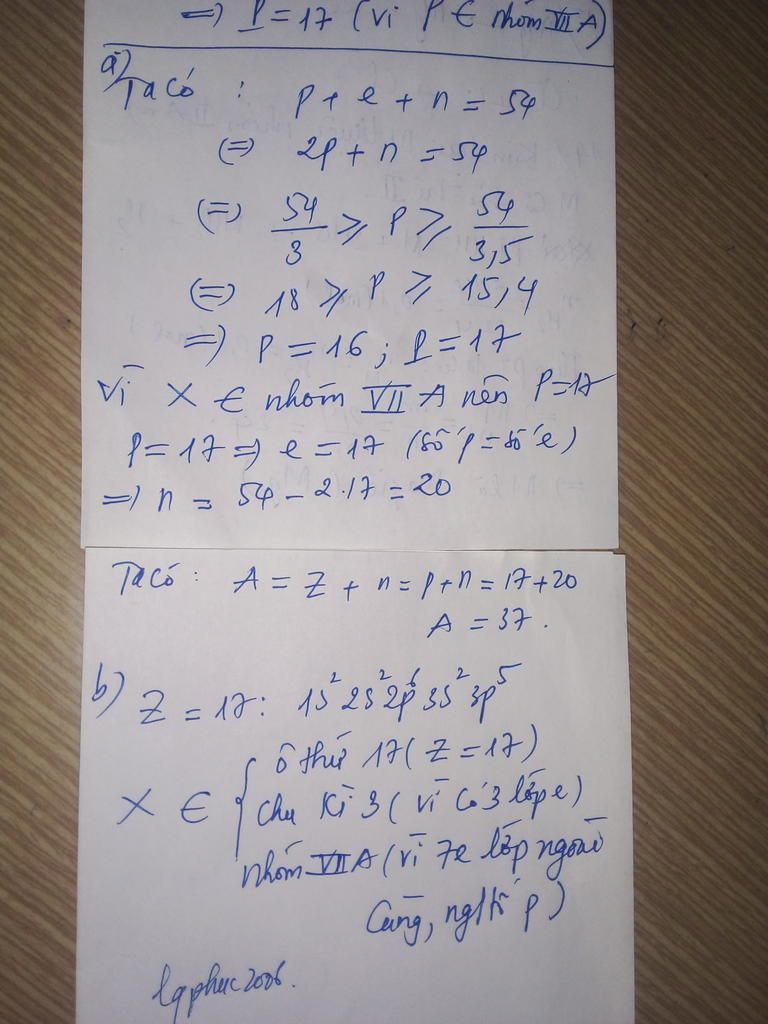 =) P = 17 (vì P ∈ nhóm VII A)
a)
Ta có : p + e + n = 54
(=) 2p + n = 54
(=) 54/3 ≥ P ≥ 54/3,5
(=) 18 ≥ P ≥ 15,4
=) P = 16 ; P = 17
Vì X ∈ nhóm VII A nên P = 17
P = 17 =) e = 17 (số p = số e)
=) n = 54 - 2.17 = 20
Ta có : A = Z + n = p + n = 17 + 20
A = 37 .
b) Z = 17 : 1s² 2s² 2p⁶ 3s² 3p⁵
ô thứ 17 ( Z = 17 )
X ∈ { Chu Kì 3 ( vì có 3 lớp e )
nhóm VII A ( vì 7e lớp ngoài
Cùng, ngtố p )
lqphuc2006.